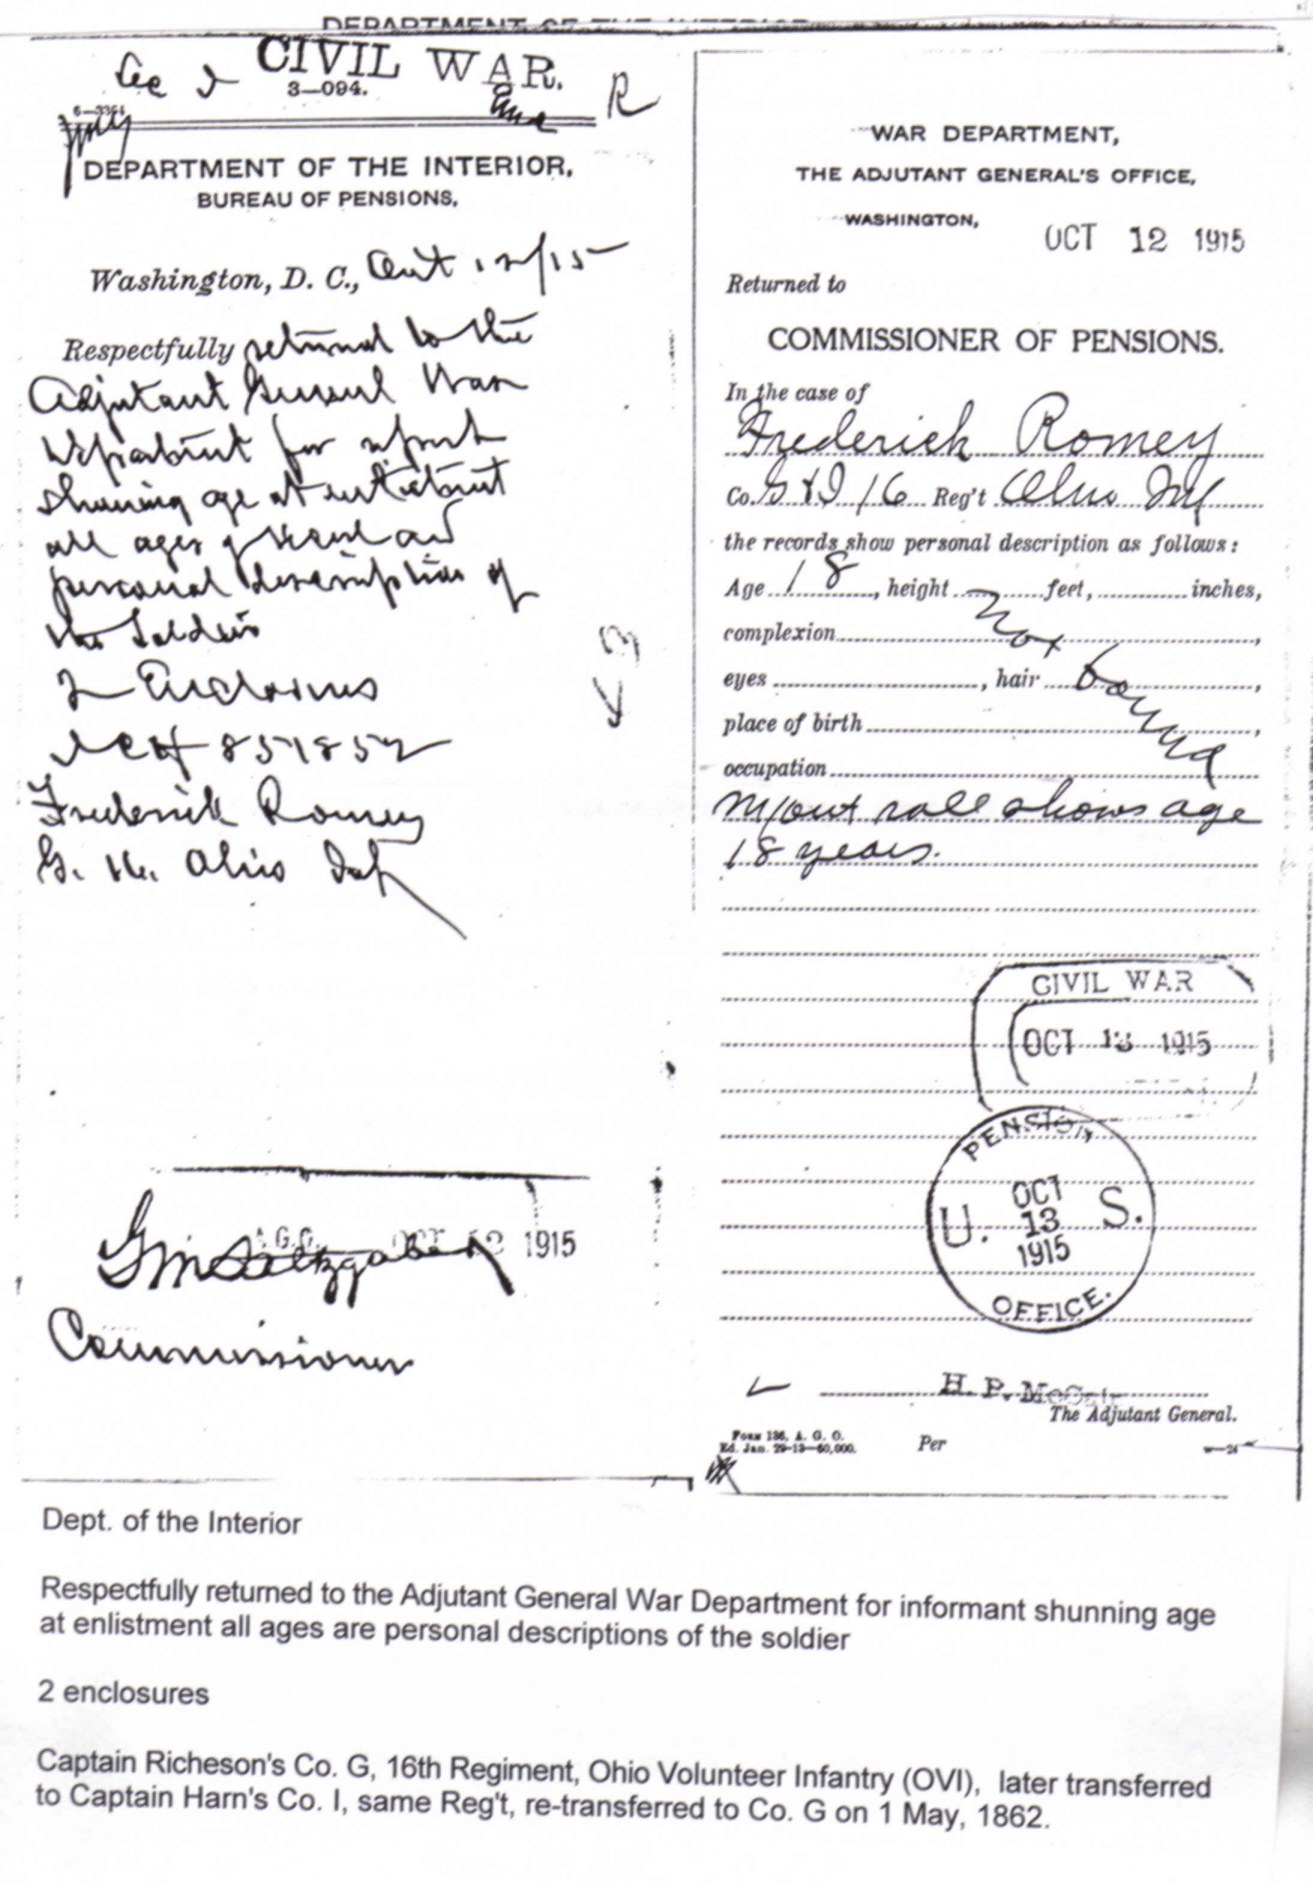 DEPARTMENT OF THE INTERIOR
CIVIL WAR.
3—094.
R
DEPARTMENT OF THE INTERIOR,
BUREAU OF PENSIONS,
Washington, D. C., Oct 12/15
Respectfully returned to the
Adjutant General War
Department for report
showing age at enlistment
all ages given and
personal description of
the soldier
2 Enclosures
857852
Frederick Romey
G. 16. Ohio Inf
A.G.O. OCT 12 1915
GM Saltzgaber
Commissioner
WAR DEPARTMENT,
THE ADJUTANT GENERAL'S OFFICE,
WASHINGTON,
OCT 12 1915
Returned to
COMMISSIONER OF PENSIONS.
In the case of
Frederick Romey
Co. G & I 16 Reg't Ohio Inf
the records show personal description as follows:
Age 18, height not feet, inches,
complexion ,
eyes , hair found ,
place of birth ,
occupation
M/out roll shows age
18 years.
CIVIL WAR
OCT 13 1915
PENSION
U. S.
OCT
13
1915
OFFICE.
H. P. McCain
The Adjutant General.
Form 136, A. G. O.
Ed. Jan. 29-13—60,000.
Per
Dept. of the Interior
Respectfully returned to the Adjutant General War Department for informant shunning age
at enlistment all ages are personal descriptions of the soldier
2 enclosures
Captain Richeson's Co. G, 16th Regiment, Ohio Volunteer Infantry (OVI), later transferred
to Captain Harn's Co. I, same Reg't, re-transferred to Co. G on 1 May, 1862.